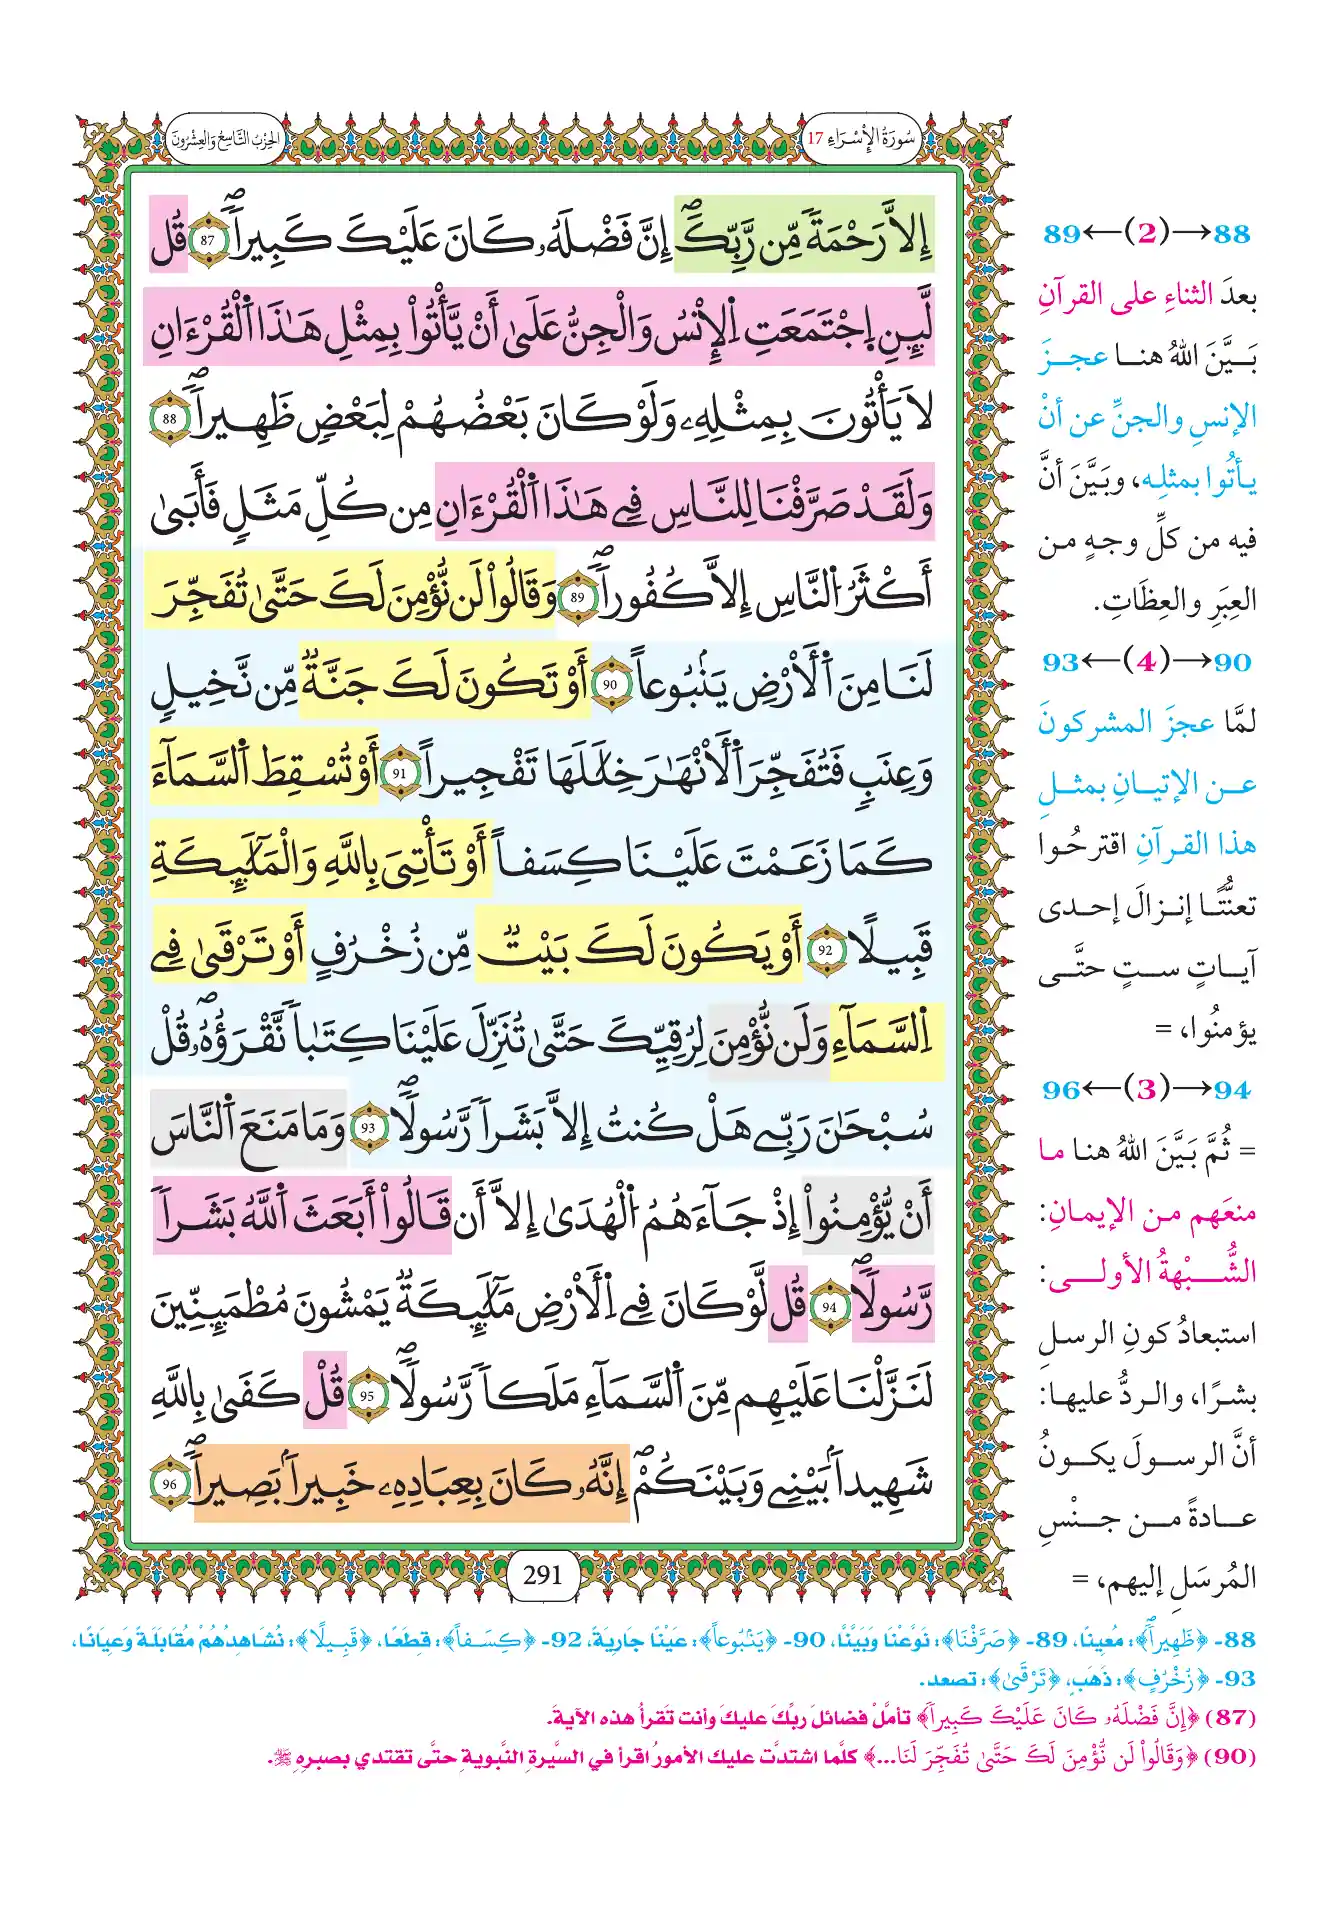 سُورَةُ الإِسْرَاءِ 17
الحِزْبُ التَّاسِعُ وَالعِشْرُونَ
إِلاَّ رَحْمَةٗ مِّن رَّبِّكَۖ إِنَّ فَضْلَهُۥ كَانَ عَلَيْكَ كَبِيراٗۖ 87 قُل
لَّئِنِ اِجْتَمَعَتِ اِلْإِنسُ وَالْجِنُّ عَلَىٰٓ أَنْ يَّأْتُواْ بِمِثْلِ هَٰذَا اَلْقُرْءَانِ
لَا يَأْتُونَ بِمِثْلِهِۦ وَلَوْ كَانَ بَعْضُهُمْ لِبَعْضٖ ظَهِيراٗۖ 88
وَلَقَدْ صَرَّفْنَا لِلنَّاسِ فِے هَٰذَا اَلْقُرْءَانِ مِن كُلِّ مَثَلٖ فَأَبَىٰٓ
أَكْثَرُ اُلنَّاسِ إِلاَّ كُفُوراٗۖ 89 وَقَالُواْ لَن نُّؤْمِنَ لَكَ حَتَّىٰ تُفَجِّرَ
لَنَا مِنَ اَلْأَرْضِ يَنۢبُوعاً 90 أَوْ تَكُونَ لَكَ جَنَّةٞ مِّن نَّخِيلٖ
وَعِنَبٖ فَتُفَجِّرَ اَلْأَنْهَٰرَ خِلَٰلَهَا تَفْجِيراً 91 أَوْ تُسْقِطَ اَلسَّمَآءَ
كَمَا زَعَمْتَ عَلَيْنَا كِسَفاً أَوْ تَأْتِيَ بِاللَّهِ وَالْمَلَٰٓئِكَةِ
قَبِيلًا 92 أَوْ يَكُونَ لَكَ بَيْتٞ مِّن زُخْرُفٍ أَوْ تَرْقَىٰ فِے
اِلسَّمَآءِ وَلَن نُّؤْمِنَ لِرُقِيِّكَ حَتَّىٰ تُنَزِّلَ عَلَيْنَا كِتَٰباٗ نَّقْرَؤُهُۥۖ قُلْ
سُبْحَٰنَ رَبِّے هَلْ كُنتُ إِلاَّ بَشَراٗ رَّسُولاٗۖ 93 وَمَا مَنَعَ اَلنَّاسَ
أَنْ يُّؤْمِنُواْ إِذْ جَآءَهُمُ اُلْهُدَىٰٓ إِلاَّ أَن قَالُواْ أَبَعَثَ اَللَّهُ بَشَراٗ
رَّسُولاٗۖ 94 قُل لَّوْ كَانَ فِے اِلْأَرْضِ مَلَٰٓئِكَةٞ يَمْشُونَ مُطْمَئِنِّينَ
لَنَزَّلْنَا عَلَيْهِم مِّنَ اَلسَّمَآءِ مَلَكاٗ رَّسُولاٗۖ 95 قُلْ كَفَىٰ بِاللَّهِ
شَهِيداَۢ بَيْنِے وَبَيْنَكُمْۖ إِنَّهُۥ كَانَ بِعِبَادِهِۦ خَبِيراَۢ بَصِيراٗۖ 96
291
88→(2)←89
بعدَ الثناءِ على القرآنِ
بَيَّنَ اللهُ هنا عجزَ
الإنسِ والجنِّ عن أنْ
يأتُوا بمثلِه، وبَيَّنَ أنَّ
فيه من كلِّ وجهٍ من
العِبَرِ والعِظَاتِ.
90→(4)←93
لمَّا عجزَ المشركونَ
عن الإتيانِ بمثلِ
هذا القرآنِ اقترحُوا
تعنُّتًا إنزالَ إحدى
آياتٍ ستٍ حتَّى
يؤمنُوا، =
94→(3)←96
= ثُمَّ بَيَّنَ اللهُ هنا ما
منعَهم من الإيمانِ:
الشُّبْهةُ الأولى:
استبعادُ كونِ الرسلِ
بشرًا، والردُّ عليها:
أنَّ الرسولَ يكونُ
عادةً من جنْسِ
المُرسَلِ إليهم، =
88- ﴿ظَهِيراٗۖ﴾: مُعِينًا، 89- ﴿صَرَّفْنَا﴾: نَوَّعْنَا وَبَيَّنَّا، 90- ﴿يَنۢبُوعاً﴾: عَيْنًا جَارِيَةً، 92- ﴿كِسَفاً﴾: قِطَعًا، ﴿قَبِيلًا﴾: نُشَاهِدُهُمْ مُقَابَلَةً وَعِيَانًا،
93- ﴿زُخْرُفٍ﴾: ذَهَبٍ، ﴿تَرْقَىٰ﴾: تصعد.
(87) ﴿إِنَّ فَضْلَهُۥ كَانَ عَلَيْكَ كَبِيراٗ﴾ تأمَّلْ فضائلَ ربِّكَ عليكَ وأنت تَقرأُ هذه الآيةَ.
(90) ﴿وَقَالُواْ لَن نُّؤْمِنَ لَكَ حَتَّىٰ تُفَجِّرَ لَنَا...﴾ كلَّما اشتدَّت عليك الأمورُ اقرأ في السَّيرةِ النَّبويةِ حتَّى تقتدي بصبرِهِ ﷺ.